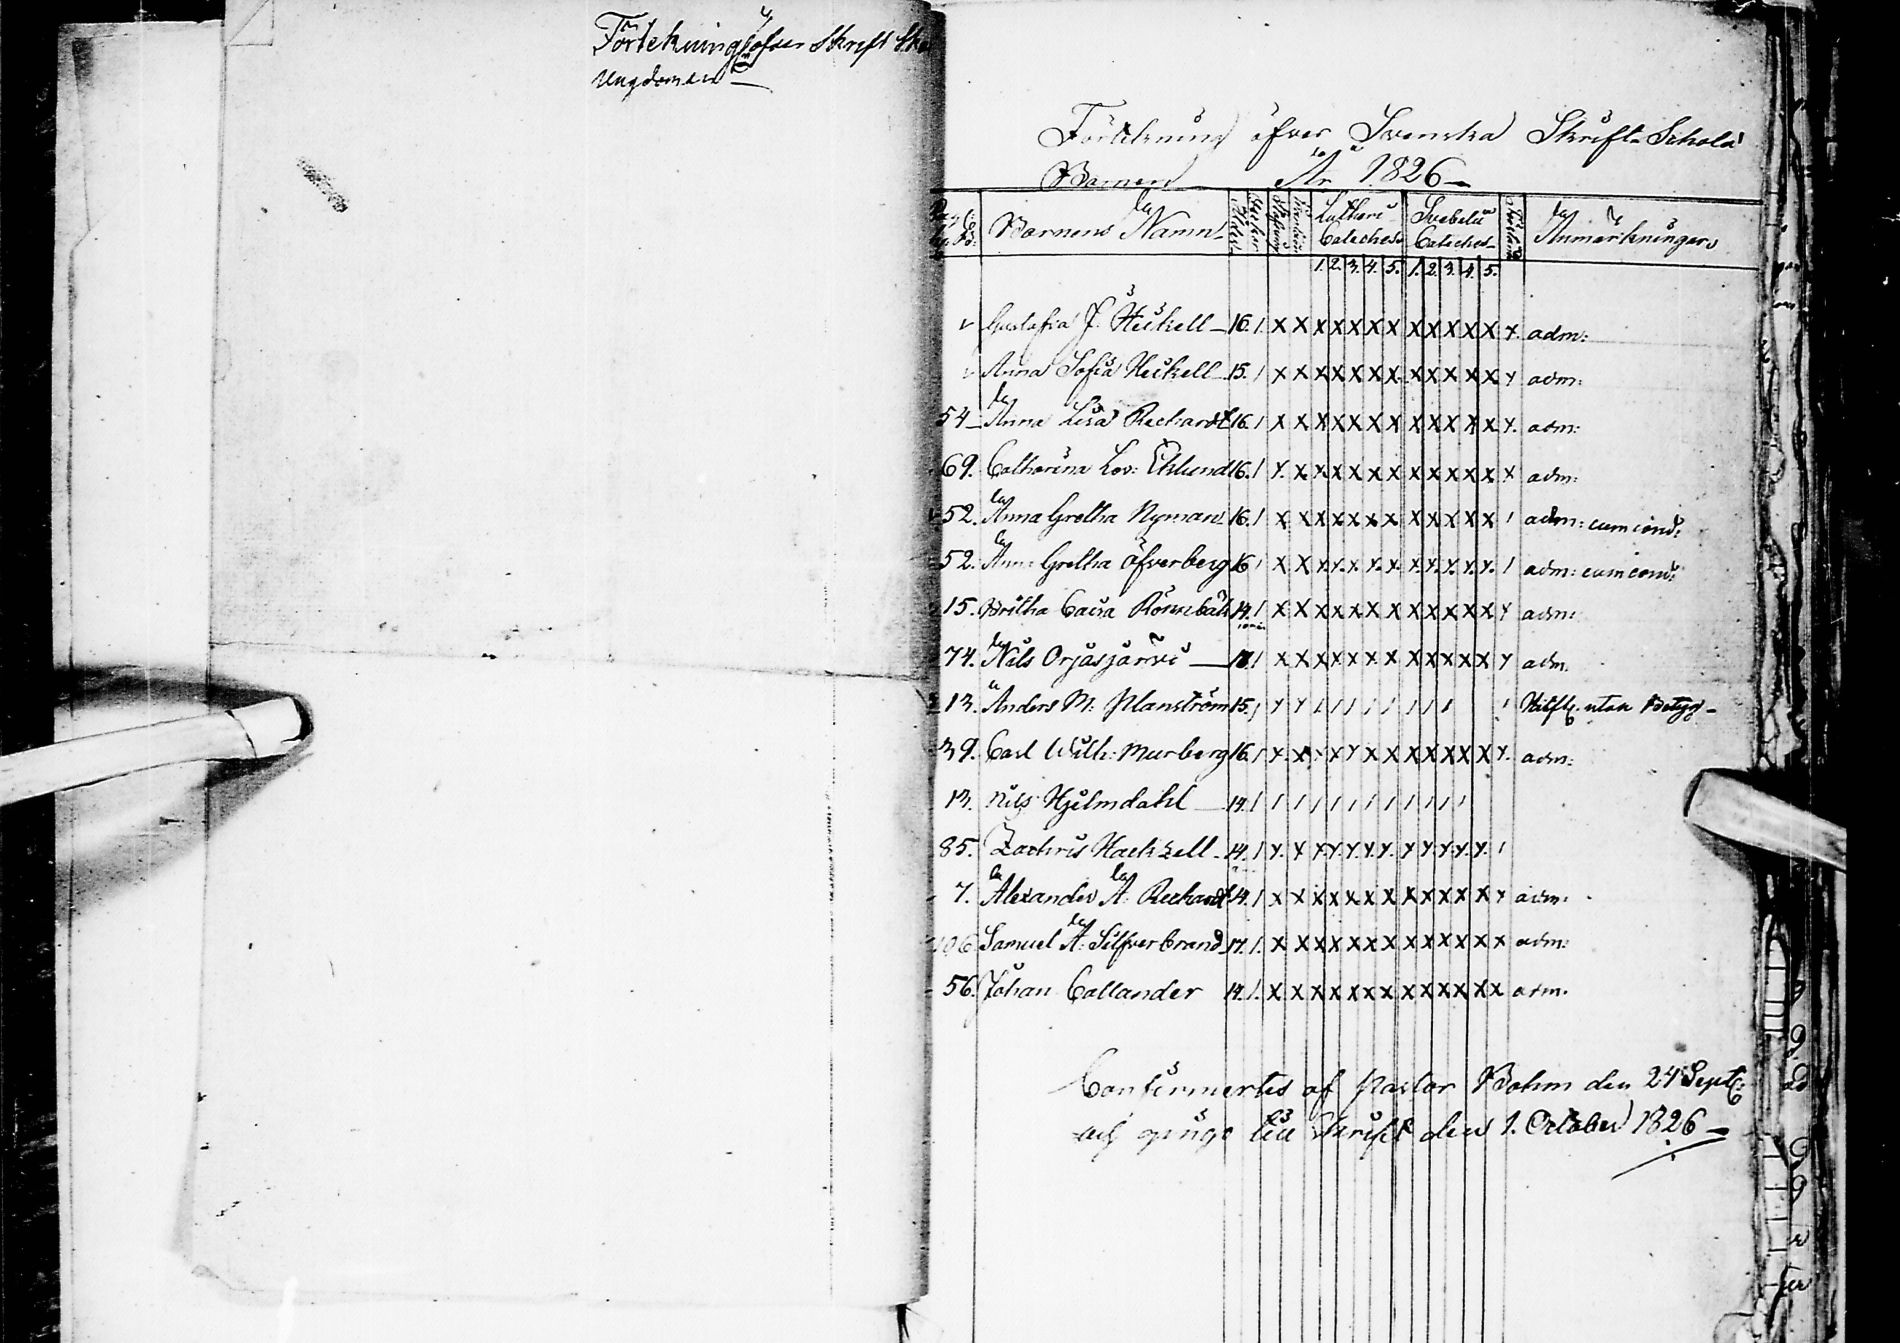 Förtekning öfver Skrift
Ungdomen
Förtekning öfver Svenska Skrift Schola
Barnen År 1826
Barnens Namn Ålder Lutheri Cateches Svebelii Cateches Anmärkningar
1. 2. 3. 4. 5. 1. 2. 3. 4. 5.
Gustafva J. Heikell 16. / X X X X X X X X X X X X X adm:
Anna Sofia Heikell 15. / X X X X X X X X X X X X X adm:
54 Anna Lisa Reckardt 16. / X X X X X X X X X X X X X adm:
69. Catharina Lov: Eklund 16. / X X X X X X X X X X X X X adm:
52. Anna Gretha Nyman 16. / X X X X X X X X X X X X / adm: cum cond:
52. Anna Gretha Öfverberg 16 / X X X X X X X X X X X X / adm: cum cond:
15. Britha Caisa Rönnbäk 14. / X X X X X X X X X X X X X adm:
74. Nils Orjasjärvi 18. / X X X X X X X X X X X X X adm.
13. Anders M: Planström 15. / X X / / / / / / / / / utan Betyg
39. Carl Wilh: Murberg 16. / X X X X X X X X X X X X adm:
13. Nils Hjelmdahl 14. / / / / / / / / / / /
85. Zachris Hackzell 14. / X X X X X X X X X X X X /
7. Alexander A. Reckardt 14. / X X X X X X X X X X X X X adm:
106 Samuel A. Silfverbrand 17. / X X X X X X X X X X X X X adm:
56. Johan Callander 14. / X X X X X X X X X X X X X adm.
Confirmertes af Pastor Bohm den 24 Sept:
och gingo till Skrift den 1. October 1826